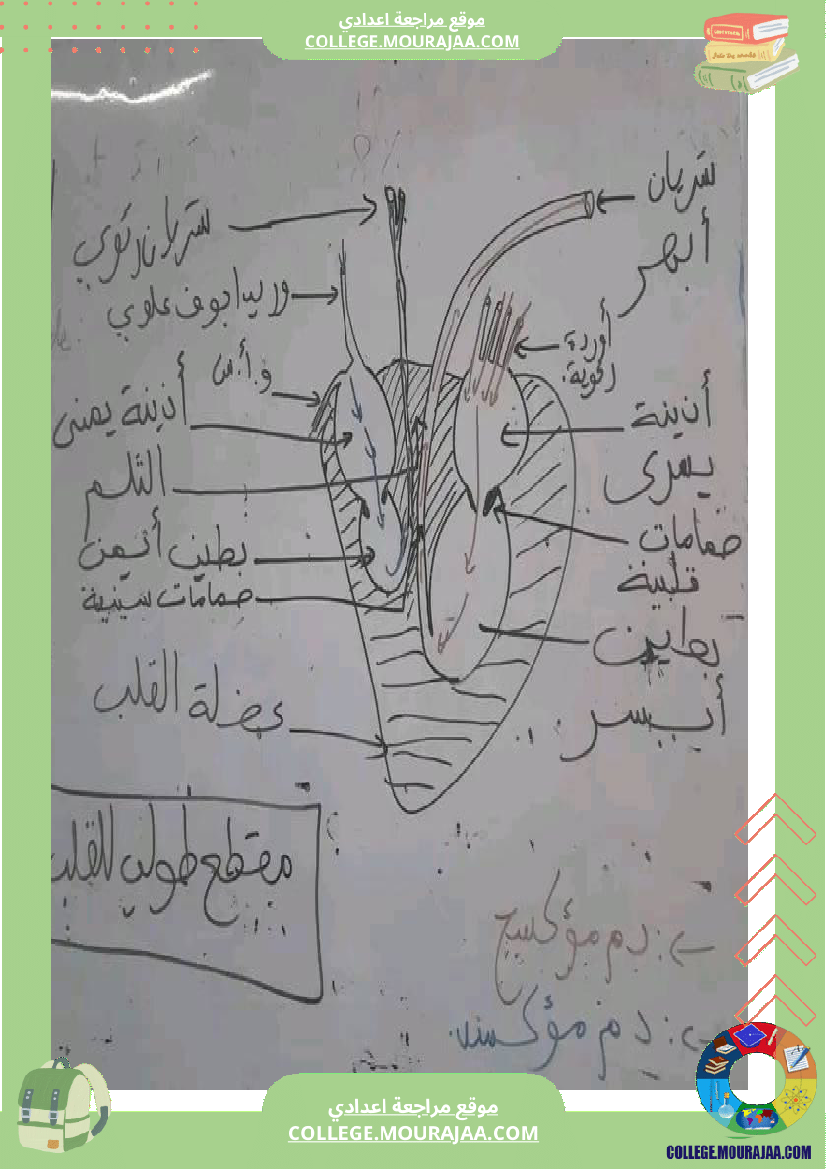 موقع مراجعة اعدادي
COLLEGE.MOURAJAA.COM
شريان
أبهر
شريان رئوي
وريد أجوف علوي
أوردة
رئوية
و.أ.س
أذينة يمنى
أذينة
يسرى
الثلم
صمامات
قلبية
بطين أيمن
صمامات سينية
بطين
أيسر
عضلة القلب
مقطع طولي للقلب
: دم مؤكسج
: دم مؤكسد
موقع مراجعة اعدادي
COLLEGE.MOURAJAA.COM
COLLEGE.MOURAJAA.COM